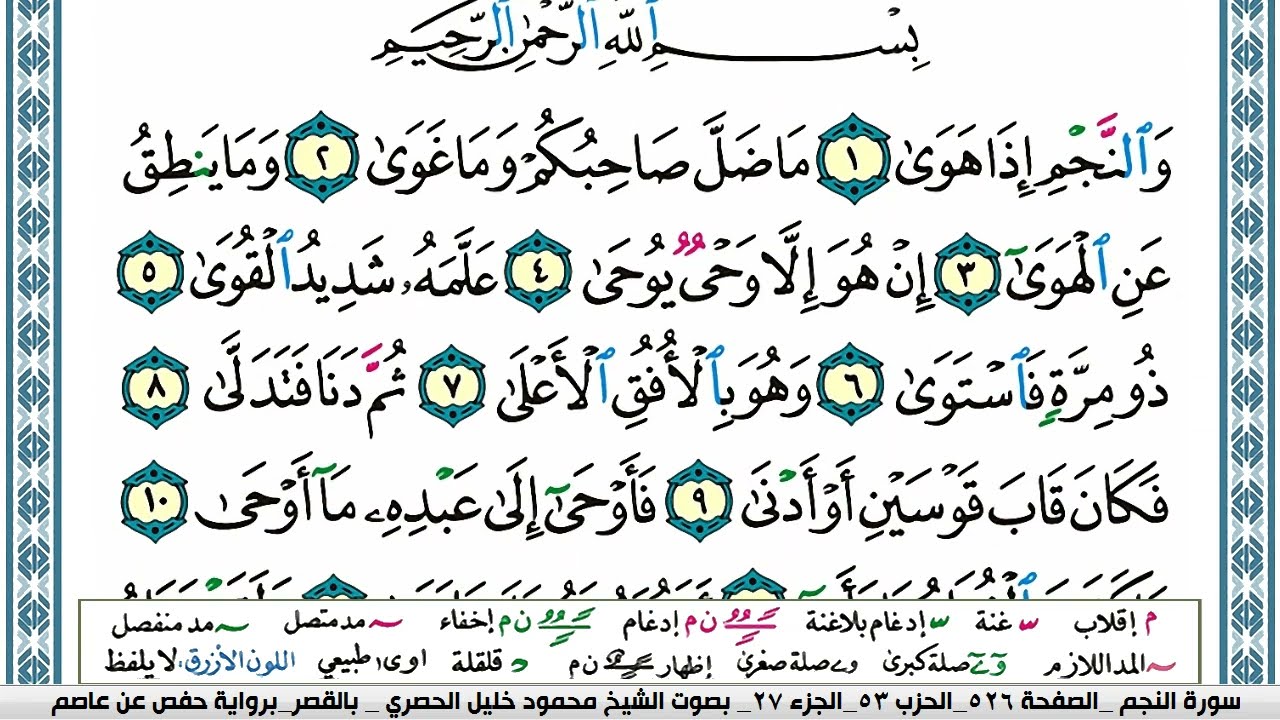 بِسْمِ ٱللَّهِ ٱلرَّحْمَٰنِ ٱلرَّحِيمِ
وَٱلنَّجْمِ إِذَا هَوَىٰ ١ مَا ضَلَّ صَاحِبُكُمْ وَمَا غَوَىٰ ٢ وَمَا يَنطِقُ
عَنِ ٱلْهَوَىٰٓ ٣ إِنْ هُوَ إِلَّا وَحْىٌ يُوحَىٰ ٤ عَلَّمَهُۥ شَدِيدُ ٱلْقُوَىٰ ٥
ذُو مِرَّةٍ فَٱسْتَوَىٰ ٦ وَهُوَ بِٱلْأُفُقِ ٱلْأَعْلَىٰ ٧ ثُمَّ دَنَا فَتَدَلَّىٰ ٨
فَكَانَ قَابَ قَوْسَيْنِ أَوْ أَدْنَىٰ ٩ فَأَوْحَىٰٓ إِلَىٰ عَبْدِهِۦ مَآ أَوْحَىٰ ١٠
م إقلاب غنة إدغام بلاغنة ن م إدغام ن م إخفاء مد متصل مد منفصل
المد اللازم صلة كبرى صلة صغرى إظهار ن م قلقلة اوى طبيعي اللون الأزرق: لا يلفظ
سورة النجم _الصفحة ٥٢٦_الحزب ٥٣_الجزء ٢٧_ بصوت الشيخ محمود خليل الحصري _ بالقصر_برواية حفص عن عاصم